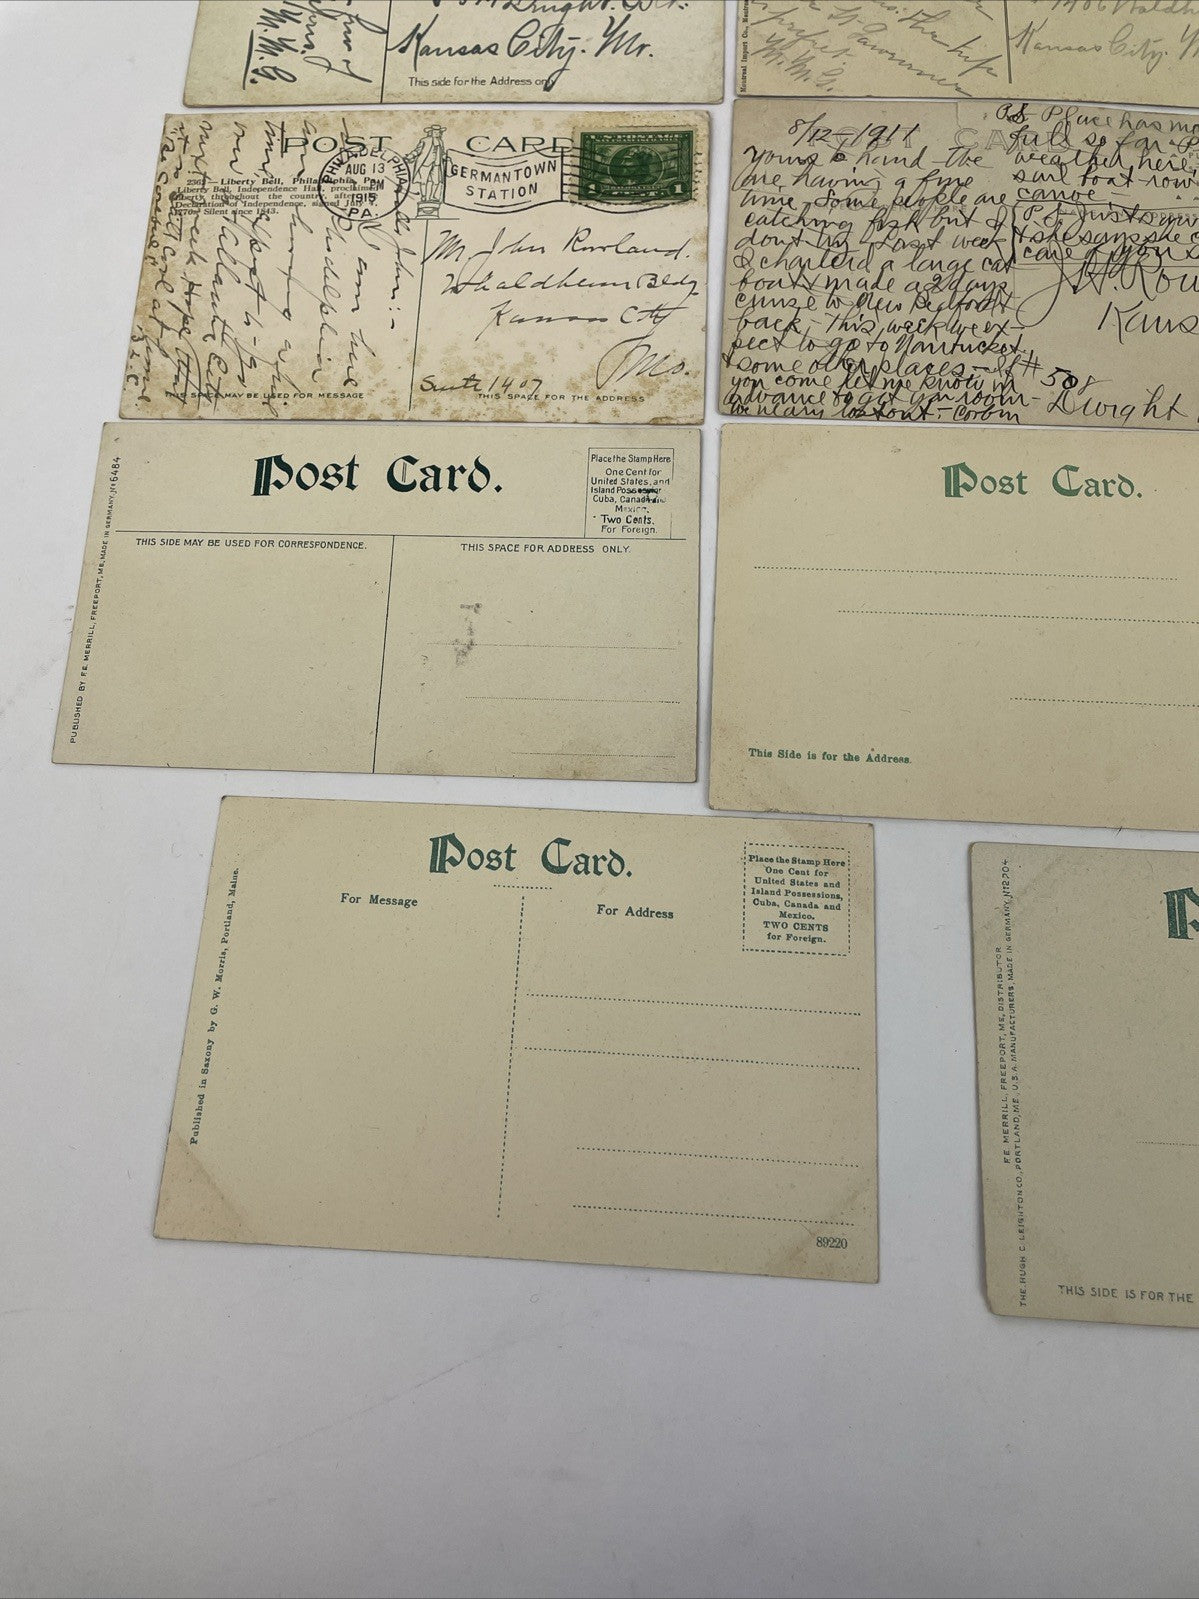 Kansas City. Mo.
This side for the Address only
M. M. G.
Montreal Import Co., Montreal
Kansas City.
M. M. G.
POST CARD
2363—Liberty Bell, Philadelphia, Pa.
Liberty Bell, Independence Hall, proclaimed
Liberty throughout the country, after
Declaration of Independence, signed July 4,
Silent since 1843.
PHILADELPHIA
AUG 13
PM
1915
PA.
GERMANTOWN
STATION
U.S. POSTAGE
1 1
Dear John:-
I am here
in Philadelphia
and having a fine
time expect to go
on to Atlantic City
next week Hope that
B.L.C.
Mr John Rowland.
Whaldheim Bldg
Kansas City
Mo.
Suite 1407
THIS SPACE MAY BE USED FOR MESSAGE
THIS SPACE FOR THE ADDRESS
8/12-1911
Yours @ hand - the
are having a fine
time. Some people are
catching fish but I
don't try. Last week
I chartered a large cat
boat & made a 2 days
cruise to New Bedford &
back,- This week we ex-
pect to go to Nantucket
& some other places.- If
you come let me know in
advance to get you room-
Corbin
P.S. Place has
full so far -
weather here,
sail boat - row
canoe
P.S. Just saw
& she says she
care of you
J. H.
Kans
#508
Dwight
Post Card.
Place the Stamp Here
One Cent for
United States, and
Island Possessior
Cuba, Canada and
Mexico,
Two Cents,
For Foreign.
THIS SIDE MAY BE USED FOR CORRESPONDENCE.
THIS SPACE FOR ADDRESS ONLY.
PUBLISHED BY F.E. MERRILL, FREEPORT, ME. MADE IN GERMANY. No 6484
Post Card.
This Side is for the Address.
Post Card.
For Message
For Address
Place the Stamp Here
One Cent for
United States and
Island Possessions,
Cuba, Canada and
Mexico.
TWO CENTS
for Foreign.
Published in Saxony by G. W. Morris, Portland, Maine.
89220
F.E. MERRILL, FREEPORT, ME, DISTRIBUTOR.
THE HUGH C. LEIGHTON CO., PORTLAND, ME., U.S.A. MANUFACTURERS, MADE IN GERMANY. No 12704
THIS SIDE IS FOR THE